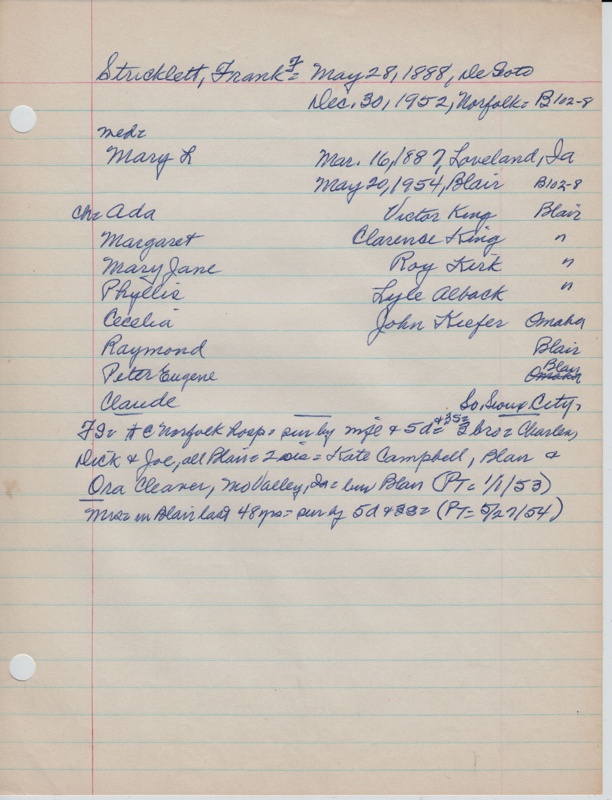 Stricklett, Frank F = May 28, 1888, De Soto
Dec. 30, 1952, Norfolk = B102-8
med=
Mary L Mar. 16, 1887, Loveland, Ia
May 20, 1954, Blair B102-8
Ch= Ada Victor King Blair
Margaret Clarence King "
Mary Jane Roy Kirk "
Phyllis Lyle Alback "
Cecelia John Kiefer Omaha
Raymond Blair
Peter Eugene Blair
Claude So. Sioux City,
Norfolk Hosp= sur by & 5d= & 3s= bro= Charles,
Dick & Joe, all Blair= 2 sis= Kate Campbell, Blair &
Ora Cleaver, Mo Valley, Ia= bur Blair (PT= 1/1/53)
Mrs= in Blair last 48 yrs= sur by 5d & 3s= (PT= 5/27/54)